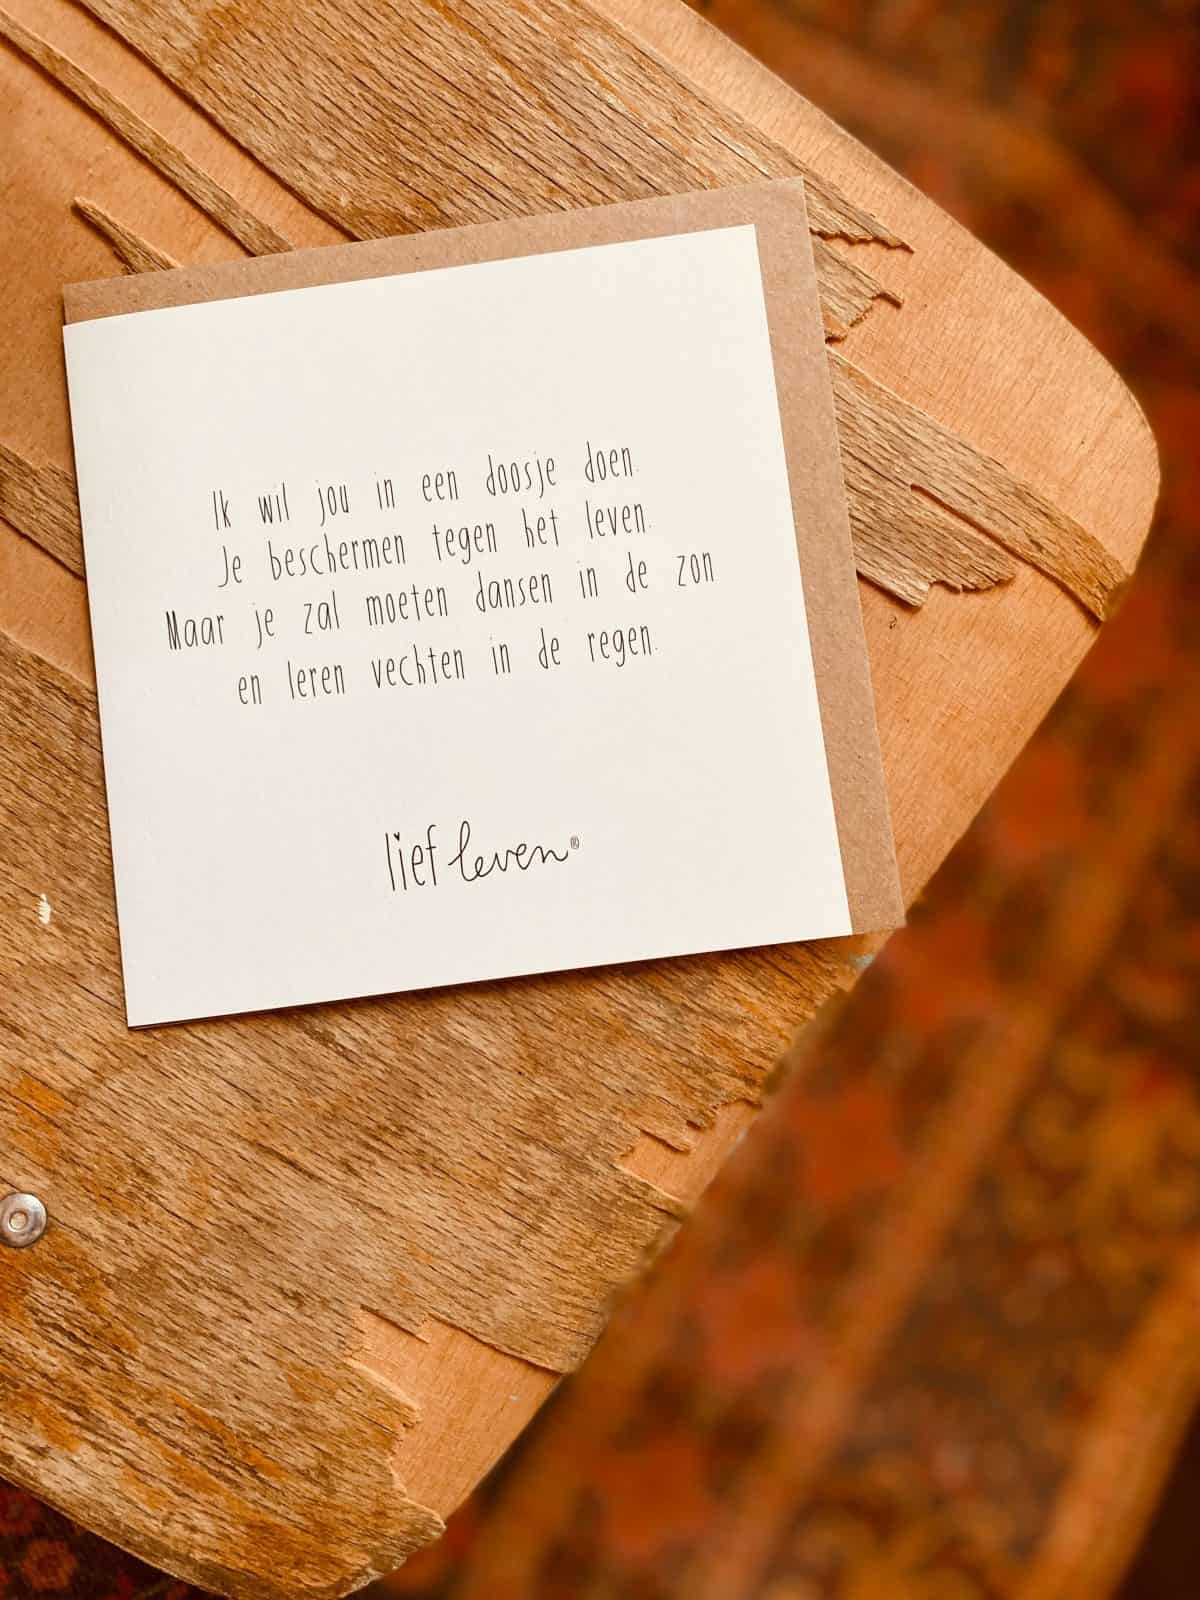 Ik wil jou in een doosje doen.
Je beschermen tegen het leven.
Maar je zal moeten dansen in de zon
en leren vechten in de regen.
lief leven®